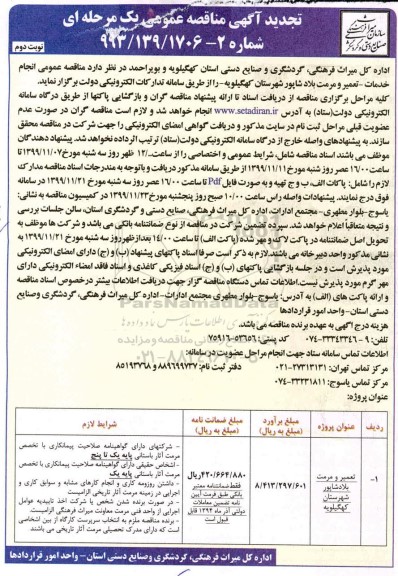 تجدید آگهی مناقصه عمومی یک مرحله ای
شماره ۲-۹۹۳/۱۳۹/۱۷۰۶
نوبت دوم
اداره کل میراث فرهنگی، گردشگری و صنایع دستی استان کهگیلویه و بویراحمد در نظر دارد مناقصه عمومی انجام
خدمات -تعمیر و مرمت بلاد شاپور شهرستان کهگیلویه -را از طریق سامانه تدارکات الکترونیکی دولت برگزار نماید.
کلیه مراحل برگزاری مناقصه از دریافت اسناد تا ارائه پیشنهاد مناقصه گران و بازگشایی پاکتها از طریق درگاه سامانه
الکترونیکی دولت(ستاد) به آدرس www.setadiran.ir انجام خواهد شد و لازم است مناقصه گران در صورت عدم
عضویت قبلی مراحل ثبت نام در سایت مذکور و دریافت گواهی امضای الکترونیکی را جهت شرکت در مناقصه محقق
سازند. به پیشنهادهای واصله خارج از درگاه سامانه الکترونیکی دولت(ستاد) ترتیب اثر داده نخواهد شد. پیشنهاد دهندگان
موظف می باشند اسناد مناقصه شامل، شرایط عمومی و اختصاصی را از ساعت ۱۲/۰۰ ظهر روز سه شنبه مورخ ۱۳۹۹/۱۱/۰۷ تا
ساعت ۱۶/۰۰ عصر روز سه شنبه مورخ ۱۳۹۹/۱۱/۱۱ از طریق سامانه مذکور دریافت و باتوجه به مندرجات اسناد مناقصه مدارک
لازم را شامل: پاکات الف، ب و ج تهیه و به صورت فایل Pdf تا ساعت ۱۶/۰۰ عصر روز سه شنبه مورخ ۱۳۹۹/۱۱/۲۱ در سامانه
فوق درج نمایند. پیشنهادات واصله راس ساعت ۱۰/۰۰ صبح روز پنجشنبه مورخ ۱۳۹۹/۱۱/۲۳ در کمیسیون مناقصه به نشانی:
یاسوج-بلوار مطهری- مجتمع ادارات-اداره کل میراث فرهنگی، صنایع دستی و گردشگری استان، سالن جلسات بررسی
و نتیجه متعاقباً اعلام خواهد شد. سپرده تضمین شرکت در مناقصه از نوع ضمانتنامه بانکی می باشد و شرکت ها موظف به
تحویل اصل ضمانتنامه در پاکت لاک و مهر شده (پاکت الف) تا ساعت ۱۴:۰۰ بعدازظهر روز سه شنبه مورخ ۱۳۹۹/۱۱/۲۱ به
نشانی مذکور واحد دبیرخانه می باشند. لازم به ذکر است صرفا اسناد پاکتهای پیشنهاد (ب) و (ج) دارای امضای الکترونیکی
مورد پذیرش است و در جلسه بازگشایی پاکتهای (ب) و (ج) اسناد فیزیکی کاغذی و اسناد فاقد امضاء الکترونیکی دارای
مهر گرم مورد پذیرش نیست. اطلاعات تماس دستگاه مناقصه گزار جهت دریافت اطلاعات بیشتر در خصوص اسناد مناقصه
و ارائه پاکت های (الف) به آدرس: یاسوج-بلوار مطهری مجتمع ادارات-اداره کل میراث فرهنگی، گردشگری وصنایع
دستی استان-واحد امور قراردادها
هزینه درج آگهی به عهده برنده مناقصه می باشد.
تلفن: ۹ - ۰۷۴-۳۳۳۴۳۳۴۶ کد پستی: ۵۳۶۵۶-۷۵۹۱۶
اطلاعات تماس سامانه ستاد جهت انجام مراحل عضویت در سامانه:
مرکز تماس تهران: ۰۲۱-۲۷۳۱۳۱۳۱ دفتر ثبت نام: ۸۸۹۶۹۷۳۷ و ۸۵۱۹۳۷۶۸
مرکز تماس یاسوج: ۰۷۴-۳۳۲۳۱۸۱۱
عنوان پروژه:
ردیف عنوان پروژه مبلغ برآورد (مبلغ به ریال) مبلغ ضمانت نامه (مبلغ به ریال) شرایط لازم
۱- تعمیر و مرمت بلادشاپور شهرستان کهگیلویه
۸/۴۱۳/۲۹۷/۶۰۱
۴۲۰/۶۶۴/۸۸۰ ریال
فقط ضمانتنامه معتبر
بانکی طبق فرمت آیین
نامه تضمین معاملات
دولتی آذر ماه ۱۳۹۴ قابل
قبول است
- شرکتهای دارای گواهینامه صلاحیت پیمانکاری با تخصص
مرمت آثار باستانی پایه یک تا پنج
- اشخاص حقیقی دارای گواهینامه صلاحیت پیمانکاری با تخصص
مرمت آثار باستانی پایه یک
- داشتن رزومه کاری و انجام کارهای مشابه و سوابق کاری و
اجرایی در زمینه مرمت آثار تاریخی الزامیست.
- در صورت برنده شدن شخص یا شرکت اخذ تاییدیه عوامل
اجرایی از واحد فنی مرمت معاونت میراث فرهنگی الزامیست.
- برنده مناقصه ملزم به انتخاب سرپرست کارگاه از بین اشخاصی
است که دارای مدرک تحصیلی مرمت آثار تاریخی می باشند.
اداره کل میراث فرهنگی، گردشگری وصنایع دستی استان - واحد امور قراردادها